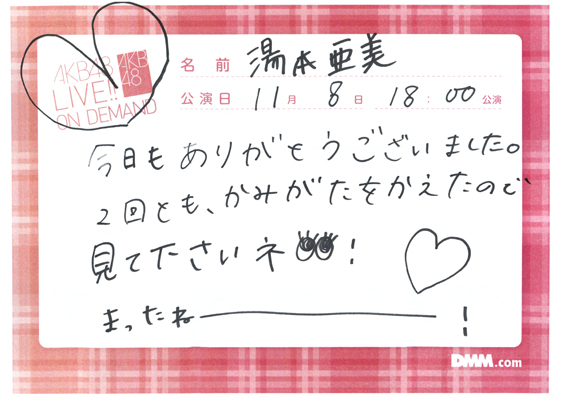 AKB48
LIVE!!
ON DEMAND
AKB
48
名前 湯本亜美
公演日 11月 8日 18:00公演
今日もありがとうございました。
2回とも、かみがたをかえたので
見てださいネ!
まったねー!
DMM.com